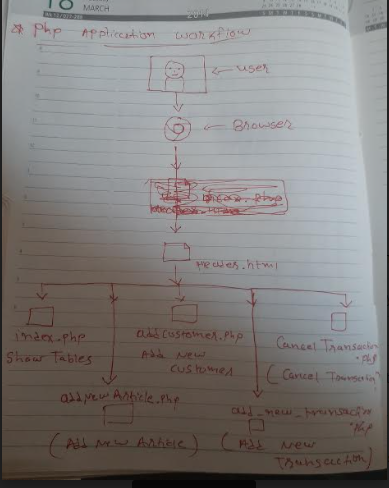 18
MARCH
2019
* Php Application Workflow
← user
← Browser
header.html
index.php
Show Tables
addcustomer.php
Add New
customer
Cancel Transaction
.php
(Cancel Transaction)
addNewArticle.php
(Add New Article)
add_new_transaction
.php
(Add New
Transaction)